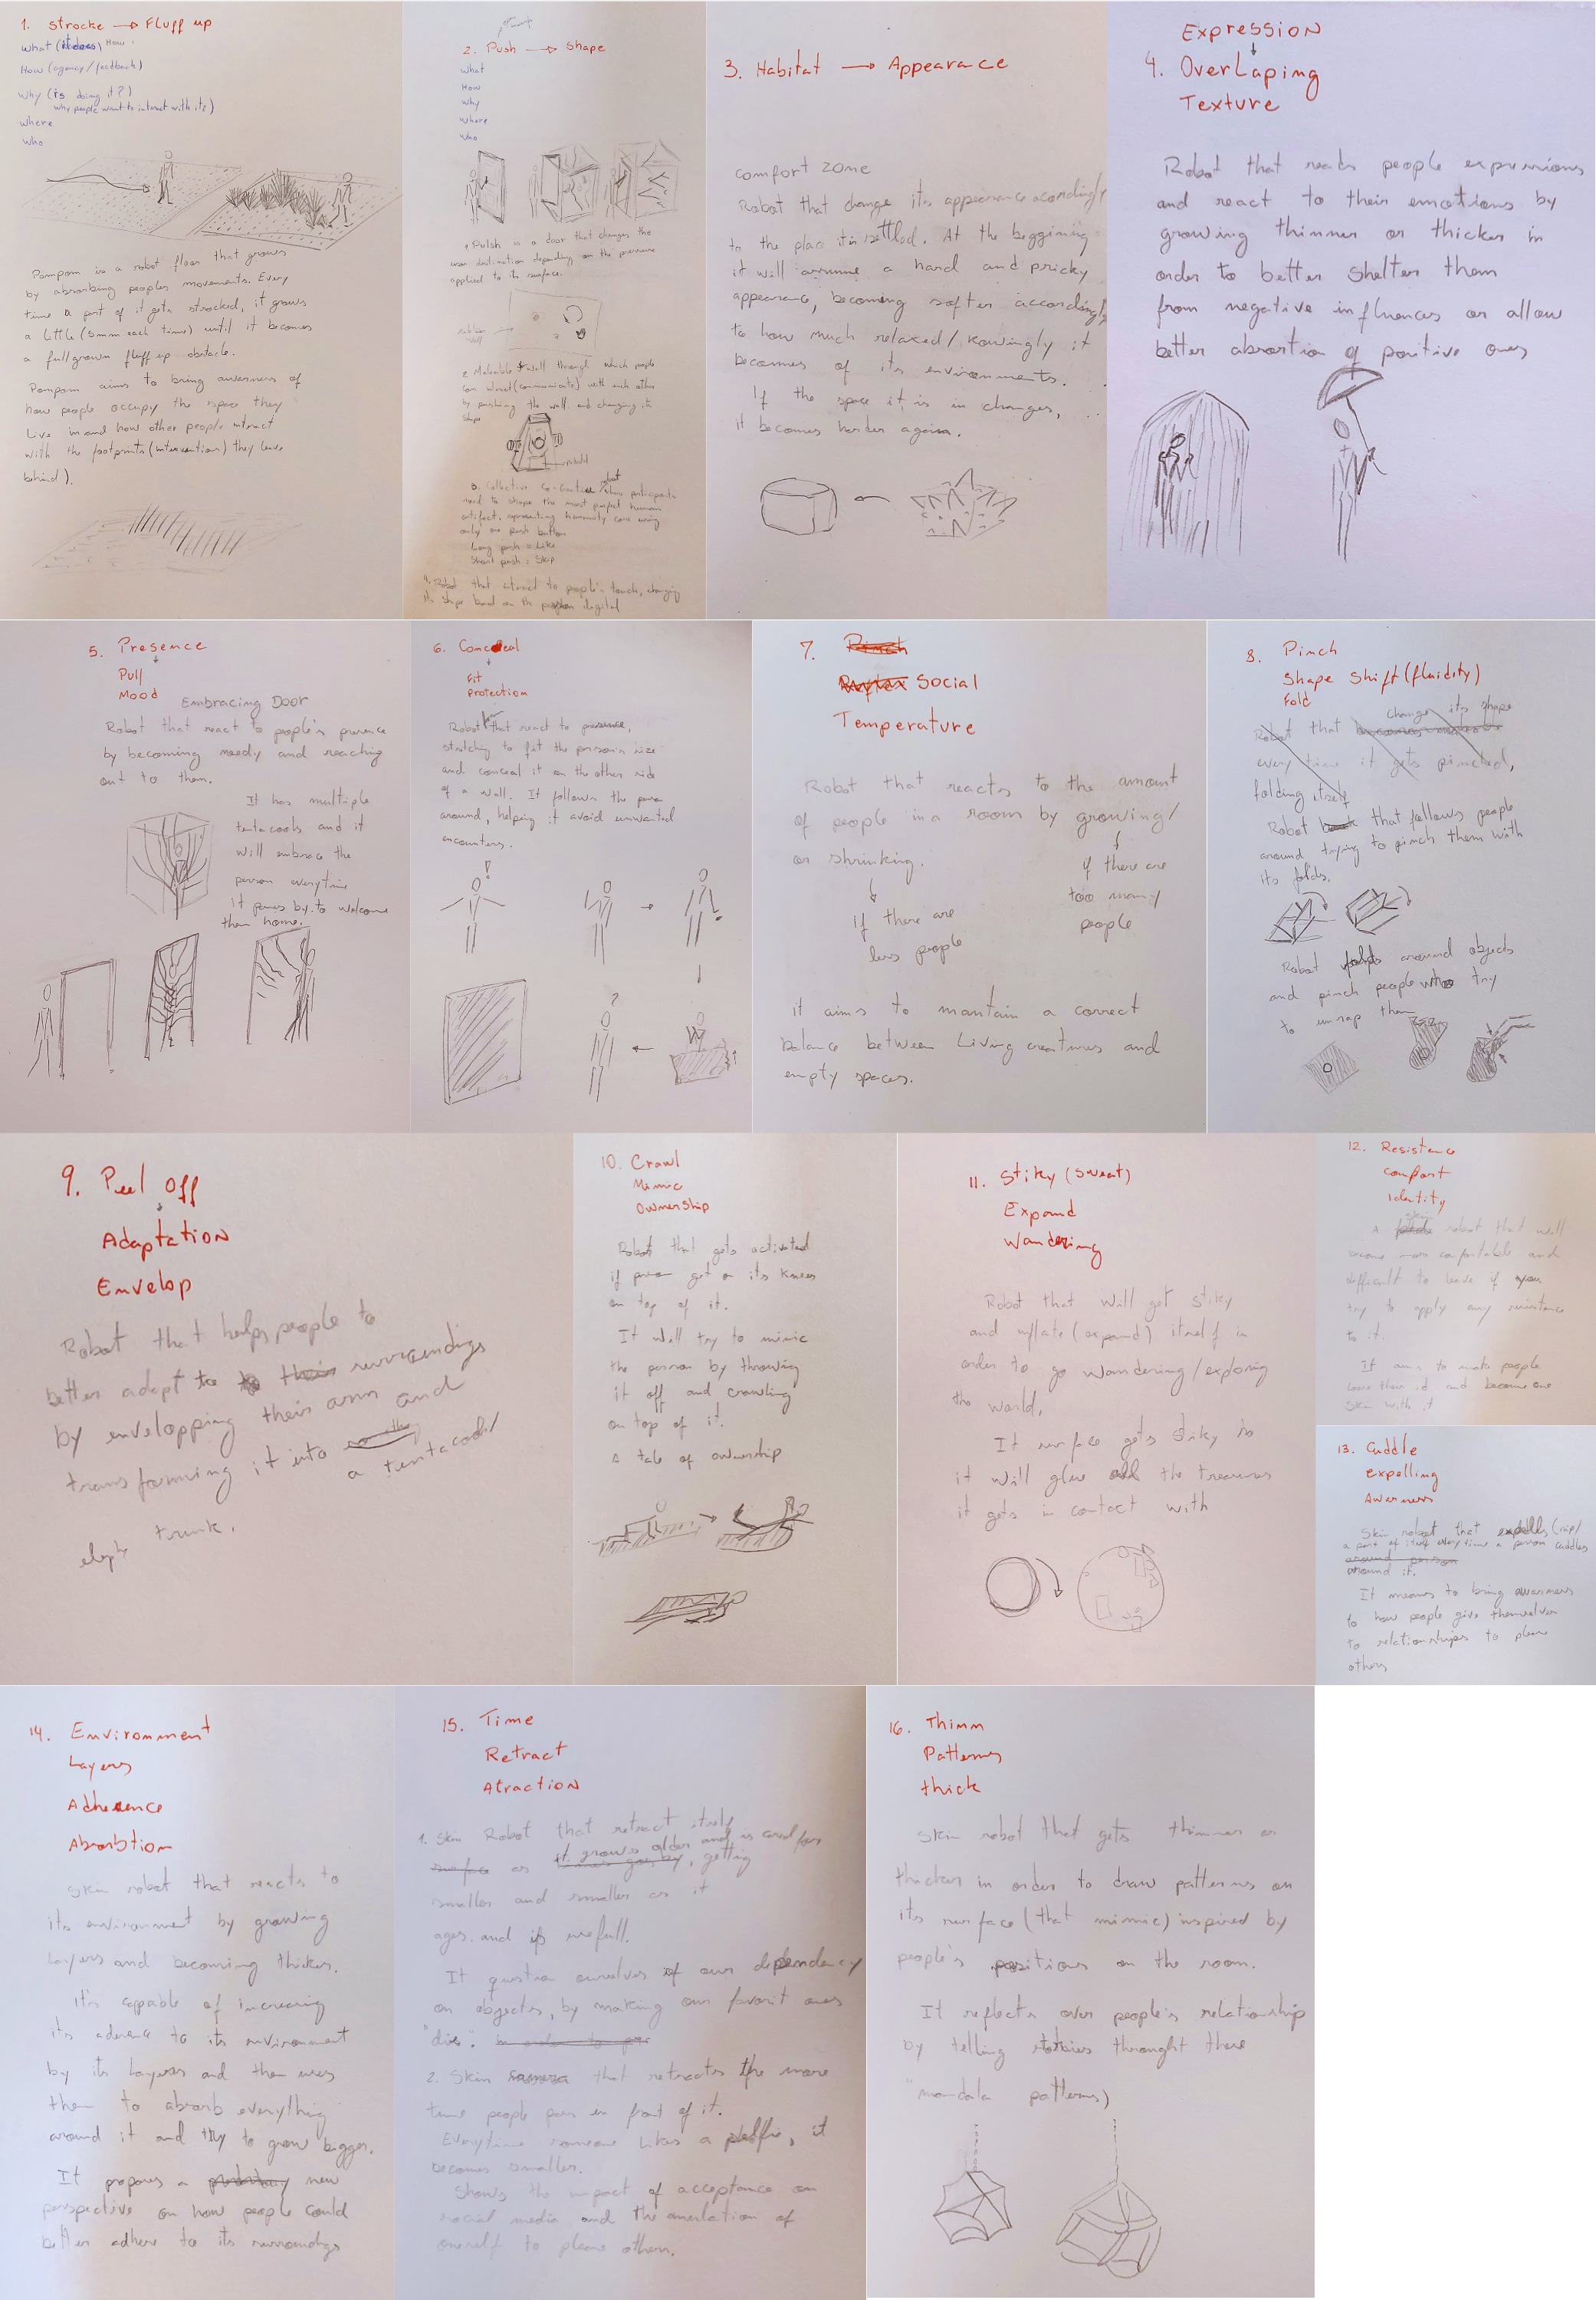 1. Strocke → Fluff up
What (it does) How
How (agency / feedback)
Why (is doing it?)
why people want to interact with it?)
Where
Who
Pompom is a robot floor that grows
by absorbing peoples movements. Every
time a part of it gets strocked, it grows
a little (5mm each time) until it becomes
a full grown fluff up obstacle.
Pompom aims to bring awarness of
how people occupy the space they
Live in and how other people interact
with the footprints (intervention) they leave
behind).
2. Push → Shape
What
How
Why
Where
Who
1. Pulsh is a door that changes the
destination depending on the pressure
applied to its surface.
2. Maleable wall through which people
can (communicate) with each other
by pushing the wall and changing its
shape
3. Collective Co-creation robot participants
need to shape the most perfect human
artifact, representing humanity core using
only one push button
Long push = Like
Short push = Skip
4. Robot that to people's touch, changing
its shape based on the digital
3. Habitat → Appearance
comfort zone
Robot that change its appearance acordingly
to the place it is settled. At the beggining
it will assume a hard and pricky
appearance, becoming softer accordingly
to how much relaxed / it
becomes of its environments.
If the space it is in changes,
it becomes harder again.
Expression
4. Overlaping
Texture
Robot that reads people expressions
and react to their emotions by
growing thinner or thicker in
order to better shelter them
from negative influences or allow
better absortion of positive ones
5. Presence
Pull
Mood
Embracing Door
Robot that react to people's presence
by becoming needy and reaching
out to them.
It has multiple
tentacools and it
will embrace the
person everytime
it passes by to welcome
them home.
6. Conceal
Fit
Protection
Robot that react to presence,
stretching to fit the person's size
and conceal it on the other side
of a wall. It follows the person
around, helping it avoid unwanted
encounters.
!
?
7. Pinch
Social
Temperature
Robot that reacts to the amount
of people in a room by growing /
or shrinking.
if there are
too many
people
if there are
less people
it aims to mantain a correct
balance between Living creatures and
empty spaces.
8. Pinch
Shape Shift (fluidity)
Fold
change its shape
Robot that
every time it gets pinched,
folding itself
Robot that follows people
around trying to pinch them with
its folds.
Robot folds around objects
and pinch people who try
to unrap them
9. Peel Off
Adaptation
Envelop
Robot that helps people to
better adapt to their surroundings
by envelopping their arm and
transforming it into
a tentacool /
trunk.
10. Crawl
Mimic
Ownership
Robot that gets activated
if person get on its knees
on top of it.
It will try to mimic
the person by throwing
it off and crawling
on top of it.
A tale of ownership
11. Stiky (sweat)
Expand
Wandering
Robot that will get stiky
and inflate (expand) itself in
order to go wandering / exploring
the world.
It surface gets stiky so
it will glue all the treasures
it gets in contact with
12. Resistence
Comfort
Identity
skin
A robot that will
become more comfortable and
difficult to leave if you
try to apply any resistance
to it.
It aims to make people
it and become one
skin with it
13. Cuddle
expelling
Awarness
Skin robot that expells (rip/
a part of itself everytime a person cuddles
around person
around it.
It means to bring awarness
to how people give themselves
to relationships to please
others
14. Environment
Layers
Adherence
Absorbtion
Skin robot that reacts to
its environment by growing
Layers and becoming thicker.
It's cappable of increasing
its aderence to its environment
by its Layers and then uses
them to absorb everything
around it and try to grow bigger.
It proposes a new
perspective on how people could
better adhere to its surroundings
15. Time
Retract
Atraction
1. Skin Robot that retract itself
surface as it grows older and is cared for
times goes by, getting
smaller and smaller as it
ages, and is usefull.
It question ourselves of our dependency
on objects, by making our favorit ones
"die".
2. Skin that retracts the more
time people pass in front of it.
Everytime someone Likes a selfie, it
becomes smaller.
Shows the impact of acceptance on
social media and the anulation of
oneself to please others.
16. Thinn
Patterns
thick
Skin robot that gets thinner or
thicker in order to draw patterns on
its surface (that mimic) inspired by
people's positions on the room.
It reflects over people's relationship
by telling stories throught these
"mandala patterns)